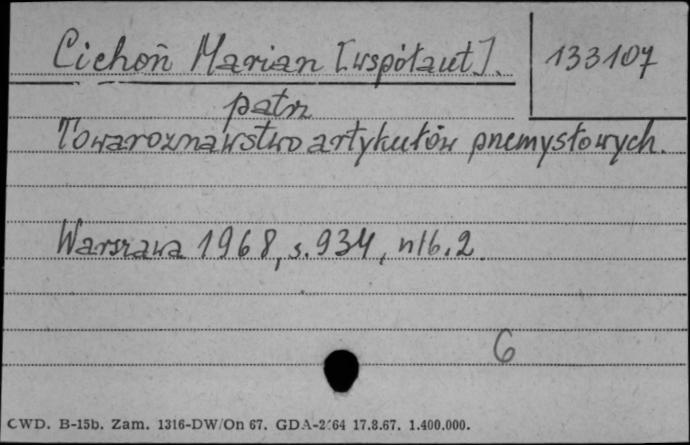 Cichoń Marian [współaut].
133107
patrz
Towaroznawstwo artykułów przemysłowych.
Warszawa 1968, s. 934, nlb. 2.
6
CWD. B-15b. Zam. 1316-DW/On 67. GDA-2264 17.8.67. 1.400.000.